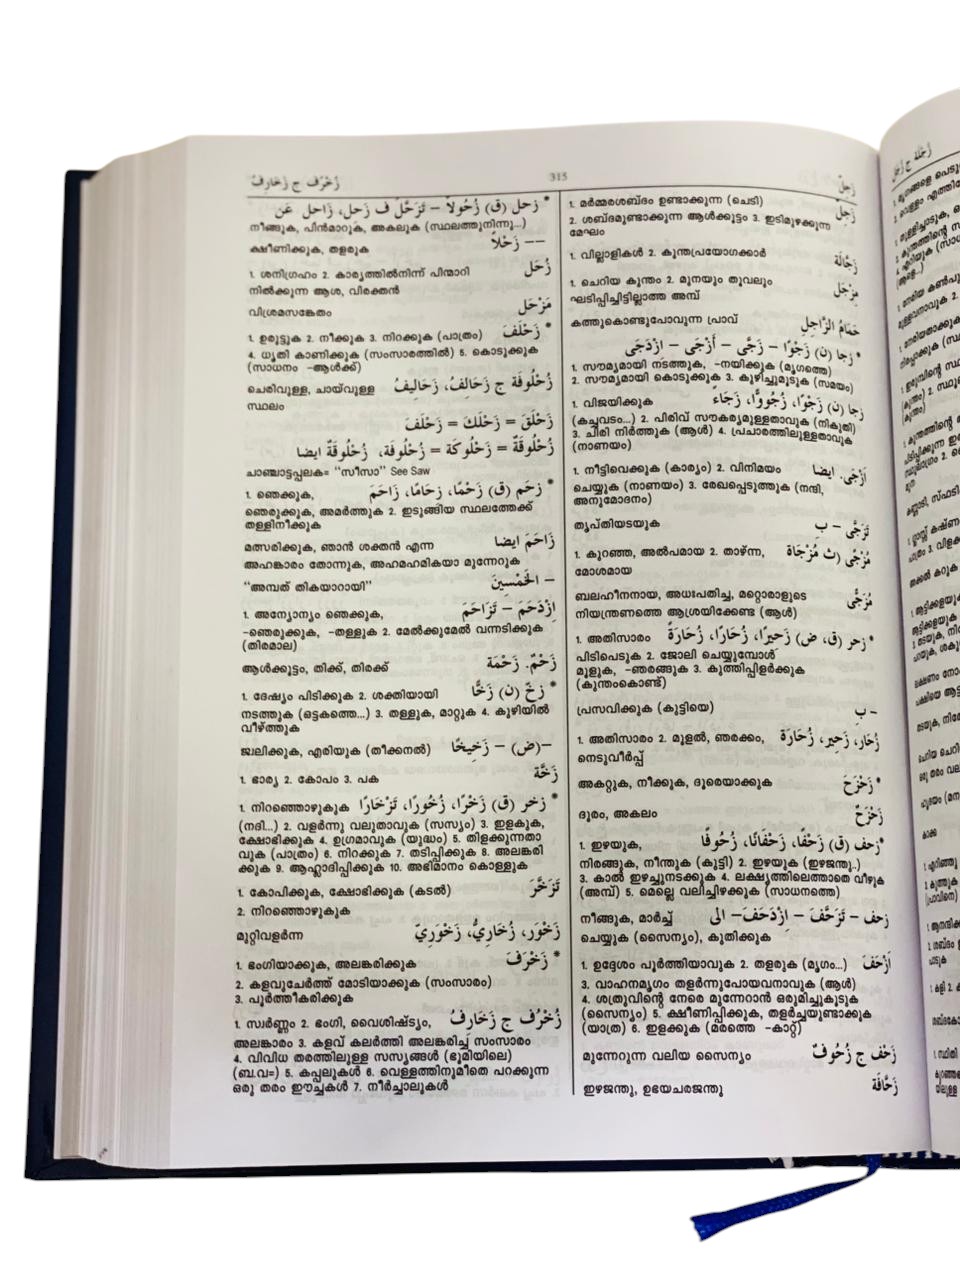 زُخْرُف ج زَخَارِفُ 315 زَجِلٌ
زَجِلٌ 1. മർമ്മരശബ്ദം ഉണ്ടാക്കുന്ന (ചെടി)
2. ശബ്ദമുണ്ടാക്കുന്ന ആൾക്കൂട്ടം 3. ഇടിമുഴക്കുന്ന
മേഘം
زَجَّالَة 1. വില്ലാളികൾ 2. കുന്തപ്രയോഗക്കാർ
مِزْجَل 1. ചെറിയ കുന്തം 2. മുനയും തൂവലും
ഘടിപ്പിച്ചിട്ടില്ലാത്ത അമ്പ്
حَمَامُ الزَّاجِل കത്തുകൊണ്ടുപോവുന്ന പ്രാവ്
* زجا (ن) زَجْوًا – زَجَّى – أَزْجَى – ازْدَجَى
1. സൗമ്യമായി നടത്തുക, -നയിക്കുക (മൃഗത്തെ)
2. സൗമ്യമായി കൊടുക്കുക 3. കുഴിച്ചുമൂടുക (സമയം)
زجا (ن) زَجْوًا، زُجُوًّا، زَجَاءً 1. വിജയിക്കുക
(കച്ചവടം...) 2. പിരിവ് സൗകര്യമുള്ളതാവുക (നികുതി)
3. ചിരി നിർത്തുക (ആൾ) 4. പ്രചാരത്തിലുള്ളതാവുക
(നാണയം)
أَزْجَى. ايضا 1. നീട്ടിവെക്കുക (കാര്യം) 2. വിനിമയം
ചെയ്യുക (നാണയം) 3. രേഖപ്പെടുത്തുക (നന്ദി,
അനുമോദനം)
تَزَجَّى – بِ തൃപ്തിയടയുക
مُزْجًى (ث مُزْجَاة 1. കുറഞ്ഞ, അൽപമായ 2. താഴ്ന്ന,
മോശമായ
مُزَجًّى ബലഹീനനായ, അധഃപതിച്ച, മറ്റൊരാളുടെ
നിയന്ത്രണത്തെ ആശ്രയിക്കേണ്ട (ആൾ)
* زحر (ق، ض) زَحِيرًا، زُحَارًا، زُحَارَةً 1. അതിസാരം
പിടിപെടുക 2. ജോലി ചെയ്യുമ്പോൾ
മൂളുക, -ഞരങ്ങുക 3. കുത്തിപ്പിളർക്കുക
(കുന്തംകൊണ്ട്)
– بِ പ്രസവിക്കുക (കുട്ടിയെ)
زُحَار، زَحِير، زُحَارَة 1. അതിസാരം 2. മൂളൽ, ഞരക്കം,
നെടുവീർപ്പ്
* زَحْزَحَ അകറ്റുക, നീക്കുക, ദൂരെയാക്കുക
زَحْزَحٌ ദൂരം, അകലം
* زحف (ق) زَحْفًا، زَحَفَانًا، زُحُوفًا 1. ഇഴയുക,
നിരങ്ങുക, നീന്തുക (കുട്ടി) 2. ഇഴയുക (ഇഴജന്തു..)
3. കാൽ ഇഴച്ചുനടക്കുക 4. ലക്ഷ്യത്തിലെത്താതെ വീഴുക
(അമ്പ്) 5. മെല്ലെ വലിച്ചിഴക്കുക (സാധനത്തെ)
زحف – تَزَحَّفَ – ازْدَحَفَ – الى നീങ്ങുക, മാർച്ച്
ചെയ്യുക (സൈന്യം), കുതിക്കുക
أَزْحَفَ 1. ഉദ്ദേശം പൂർത്തിയാവുക 2. തളരുക (മൃഗം...)
3. വാഹനമൃഗം തളർന്നുപോയവനാവുക (ആൾ)
4. ശത്രുവിന്റെ നേരെ മുന്നേറാൻ ഒരുമിച്ചുകൂടുക
(സൈന്യം) 5. ക്ഷീണിപ്പിക്കുക, തളർച്ചയുണ്ടാക്കുക
(യാത്ര) 6. ഇളക്കുക (മരത്തെ -കാറ്റ്)
زَحْف ج زُحُوفٌ മുന്നേറുന്ന വലിയ സൈന്യം
زَحَّافَة ഇഴജന്തു, ഉഭയചരജന്തു
* زحل (ق) زُحُولاً – تَزَحَّلَ ف زَحِل، زَاحِل عَن
നീങ്ങുക, പിൻമാറുക, അകലുക (സ്ഥലത്തുനിന്നു...)
–– زَحْلاً ക്ഷീണിക്കുക, തളരുക
زُحَل 1. ശനിഗ്രഹം 2. കാര്യത്തിൽനിന്ന് പിന്മാറി
നിൽക്കുന്ന ആശ, വിരക്തൻ
مَزْحَل വിശ്രമസങ്കേതം
* زَحْلَفَ 1. ഉരുട്ടുക 2. നീക്കുക 3. നിറക്കുക (പാത്രം)
4. ധൃതി കാണിക്കുക (സംസാരത്തിൽ) 5. കൊടുക്കുക
(സാധനം -ആൾക്ക്)
زُحْلُوفَة ج زَحَالِفُ، زَحَالِيفُ ചെരിവുള്ള, ചായ്‌വുള്ള
സ്ഥലം
زَحْلَقَ = زَحْلَكَ = زَحْلَفَ
زُحْلُوقَةٌ = زُحْلُوكَة = زُحْلُوفَة، زُحْلُوقَةٌ ايضا
ചാഞ്ചാട്ടപ്പലക= “സീസാ” See Saw
* زحَم (ق) زَحْمًا، زِحَامًا، زَاحَمَ 1. ഞെക്കുക,
ഞെരുക്കുക, അമർത്തുക 2. ഇടുങ്ങിയ സ്ഥലത്തേക്ക്
തള്ളിനീക്കുക
زَاحَمَ ايضا മത്സരിക്കുക, ഞാൻ ശക്തൻ എന്ന
അഹങ്കാരം തോന്നുക, അഹമഹമികയാ മുന്നേറുക
– الخَمْسِينَ “അമ്പത് തികയാറായി”
اِزْدَحَمَ – تَزَاحَمَ 1. അന്യോന്യം ഞെക്കുക,
-ഞെരുക്കുക, -തള്ളുക 2. മേൽക്കുമേൽ വന്നടിക്കുക
(തിരമാല)
زَحْمٌ. زَحْمَة ആൾക്കൂട്ടം, തിക്ക്, തിരക്ക്
* زخّ (ن) زَخًّا 1. ദേഷ്യം പിടിക്കുക 2. ശക്തിയായി
നടത്തുക (ഒട്ടകത്തെ...) 3. തള്ളുക, മാറ്റുക 4. കുഴിയിൽ
വീഴ്ത്തുക
–(ض) – زَخِيخًا ജ്വലിക്കുക, എരിയുക (തീക്കനൽ)
زَخَّة 1. ഭാര്യ 2. കോപം 3. പക
* زخر (ق) زَخْرًا، زُخُورًا، تَزْخَارًا 1. നിറഞ്ഞൊഴുകുക
(നദി...) 2. വളർന്നു വലുതാവുക (സസ്യം) 3. ഇളകുക,
ക്ഷോഭിക്കുക 4. ഉഗ്രമാവുക (യുദ്ധം) 5. തിളക്കുന്നതാ
വുക (പാത്രം) 6. നിറക്കുക 7. തടിപ്പിക്കുക 8. അലങ്കരി
ക്കുക 9. ആഹ്ലാദിപ്പിക്കുക 10. അഭിമാനം കൊള്ളുക
تَزَخَّرَ 1. കോപിക്കുക, ക്ഷോഭിക്കുക (കടൽ)
2. നിറഞ്ഞൊഴുകുക
زَخْوَر، زُخَارِيُّ، زَخْوَرِيّ മുറ്റിവളർന്ന
* زَخْرَفَ 1. ഭംഗിയാക്കുക, അലങ്കരിക്കുക
2. കളവുചേർത്ത് മോടിയാക്കുക (സംസാരം)
3. പൂർത്തീകരിക്കുക
زُخْرُف ج زَخَارِفُ 1. സ്വർണ്ണം 2. ഭംഗി, വൈശിഷ്ട്യം,
അലങ്കാരം 3. കളവ് കലർത്തി അലങ്കരിച്ച സംസാരം
4. വിവിധ തരത്തിലുള്ള സസ്യങ്ങൾ (ഭൂമിയിലെ)
(ബ.വ=) 5. കപ്പലുകൾ 6. വെള്ളത്തിനുമീതെ പറക്കുന്ന
ഒരു തരം ഈച്ചകൾ 7. നീർച്ചാലുകൾ